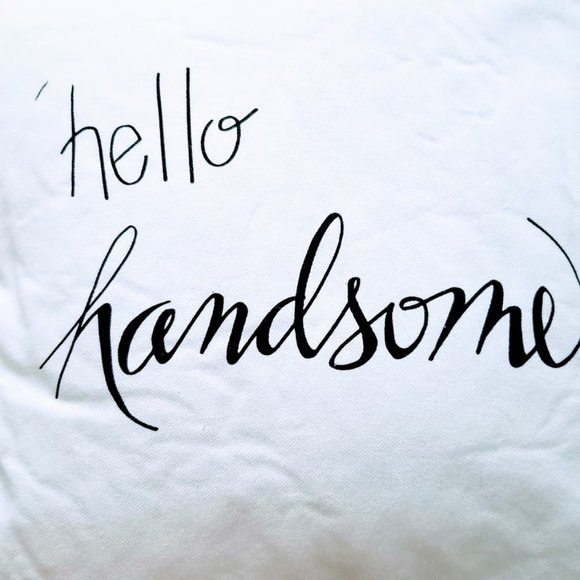 hello
handsome